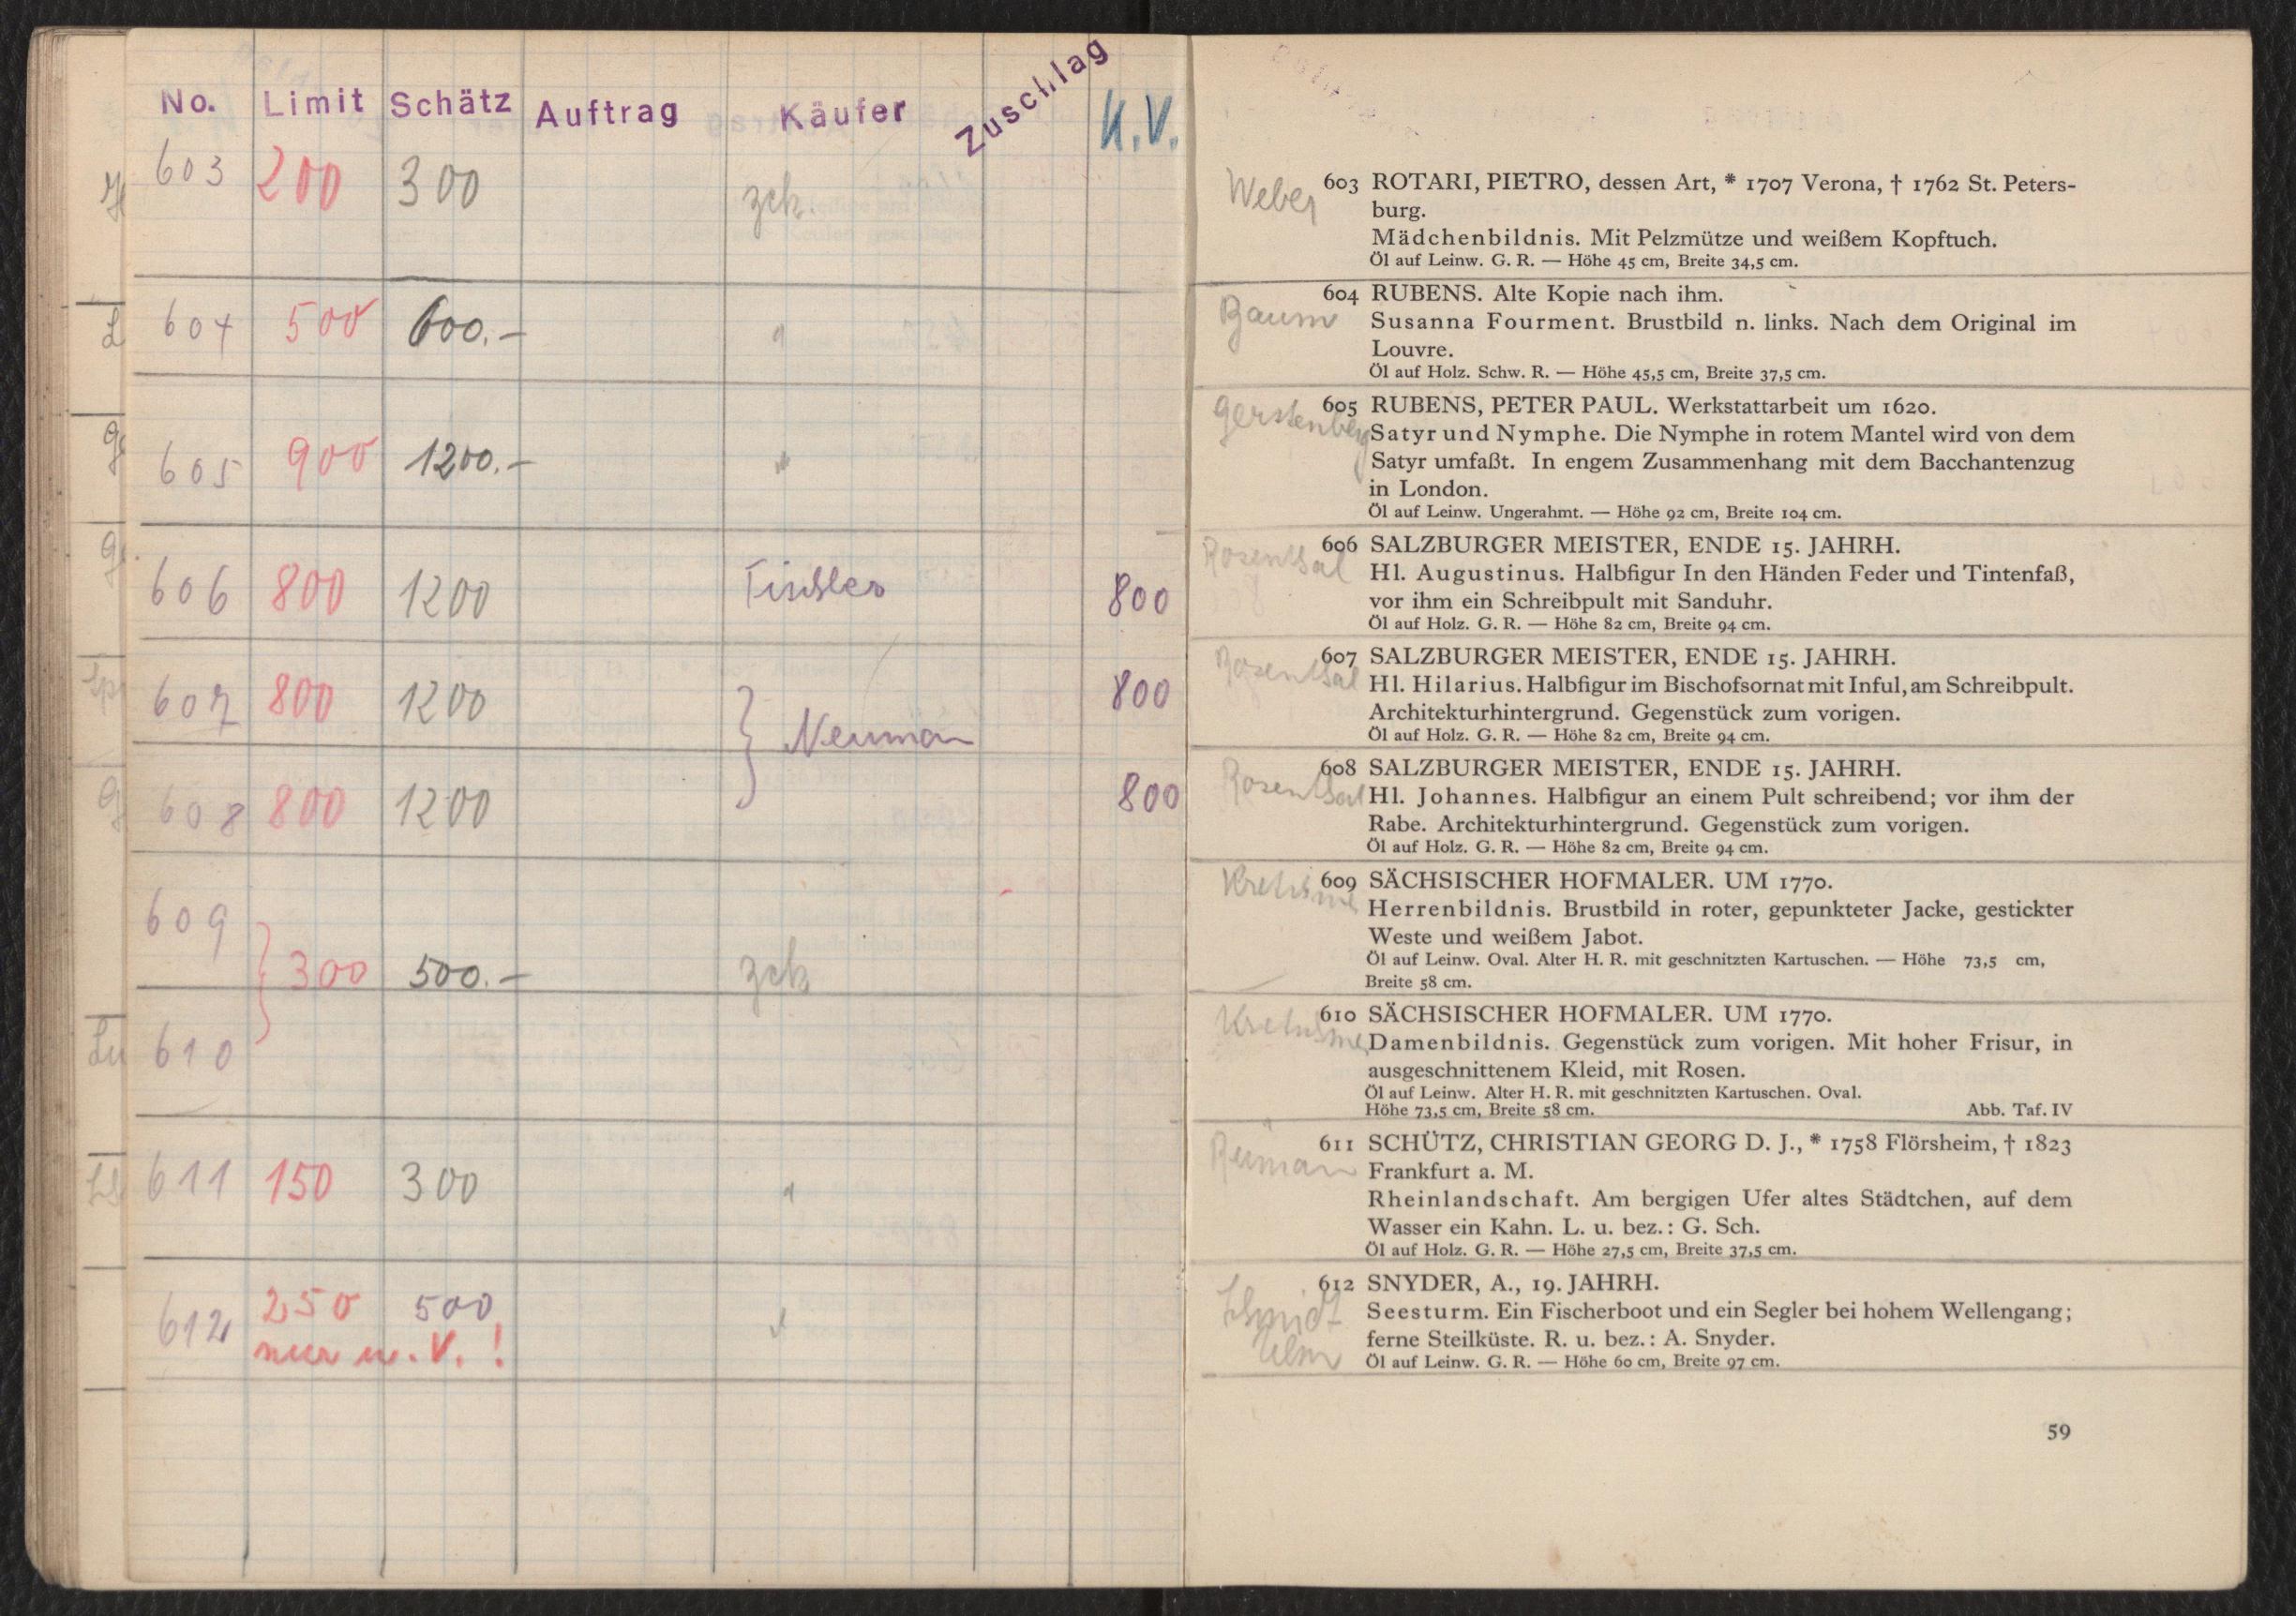 No. Limit Schätz Auftrag Käufer Zuschlag K.V.
603 200 300 zck.
604 500 600.- "
605 900 1200.- "
606 800 1200 Fischler 800
607 800 1200 800
} Neuman
608 800 1200 800
609
} 300 500.- zck
610
611 150 300 "
612 250 500 "
nur u. V. !
Weber 603 ROTARI, PIETRO, dessen Art, * 1707 Verona, † 1762 St. Peters-
burg.
Mädchenbildnis. Mit Pelzmütze und weißem Kopftuch.
Öl auf Leinw. G. R. — Höhe 45 cm, Breite 34,5 cm.
Baum 604 RUBENS. Alte Kopie nach ihm.
Susanna Fourment. Brustbild n. links. Nach dem Original im
Louvre.
Öl auf Holz. Schw. R. — Höhe 45,5 cm, Breite 37,5 cm.
Gerstenberg 605 RUBENS, PETER PAUL. Werkstattarbeit um 1620.
Satyr und Nymphe. Die Nymphe in rotem Mantel wird von dem
Satyr umfaßt. In engem Zusammenhang mit dem Bacchantenzug
in London.
Öl auf Leinw. Ungerahmt. — Höhe 92 cm, Breite 104 cm.
Rosenthal 606 SALZBURGER MEISTER, ENDE 15. JAHRH.
Hl. Augustinus. Halbfigur In den Händen Feder und Tintenfaß,
vor ihm ein Schreibpult mit Sanduhr.
Öl auf Holz. G. R. — Höhe 82 cm, Breite 94 cm.
Rosenthal 607 SALZBURGER MEISTER, ENDE 15. JAHRH.
Hl. Hilarius. Halbfigur im Bischofsornat mit Inful, am Schreibpult.
Architekturhintergrund. Gegenstück zum vorigen.
Öl auf Holz. G. R. — Höhe 82 cm, Breite 94 cm.
Rosenthal 608 SALZBURGER MEISTER, ENDE 15. JAHRH.
Hl. Johannes. Halbfigur an einem Pult schreibend; vor ihm der
Rabe. Architekturhintergrund. Gegenstück zum vorigen.
Öl auf Holz. G. R. — Höhe 82 cm, Breite 94 cm.
609 SÄCHSISCHER HOFMALER. UM 1770.
Herrenbildnis. Brustbild in roter, gepunkteter Jacke, gestickter
Weste und weißem Jabot.
Öl auf Leinw. Oval. Alter H. R. mit geschnitzten Kartuschen. — Höhe 73,5 cm,
Breite 58 cm.
610 SÄCHSISCHER HOFMALER. UM 1770.
Damenbildnis. Gegenstück zum vorigen. Mit hoher Frisur, in
ausgeschnittenem Kleid, mit Rosen.
Öl auf Leinw. Alter H. R. mit geschnitzten Kartuschen. Oval.
Höhe 73,5 cm, Breite 58 cm. Abb. Taf. IV
611 SCHÜTZ, CHRISTIAN GEORG D. J., * 1758 Flörsheim, † 1823
Frankfurt a. M.
Rheinlandschaft. Am bergigen Ufer altes Städtchen, auf dem
Wasser ein Kahn. L. u. bez.: G. Sch.
Öl auf Holz. G. R. — Höhe 27,5 cm, Breite 37,5 cm.
Schmidt 612 SNYDER, A., 19. JAHRH.
Ulm Seesturm. Ein Fischerboot und ein Segler bei hohem Wellengang;
ferne Steilküste. R. u. bez.: A. Snyder.
Öl auf Leinw. G. R. — Höhe 60 cm, Breite 97 cm.
59